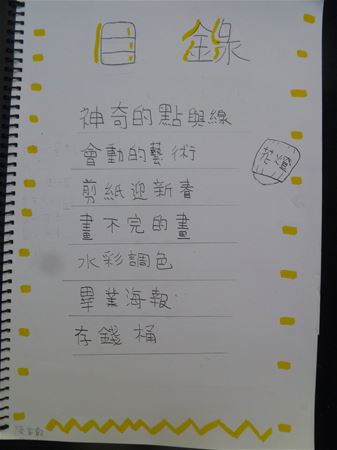 目錄
神奇的點與線
會動的藝術
花燈
剪紙迎新春
畫不完的畫
水彩調色
畢業海報
存錢桶